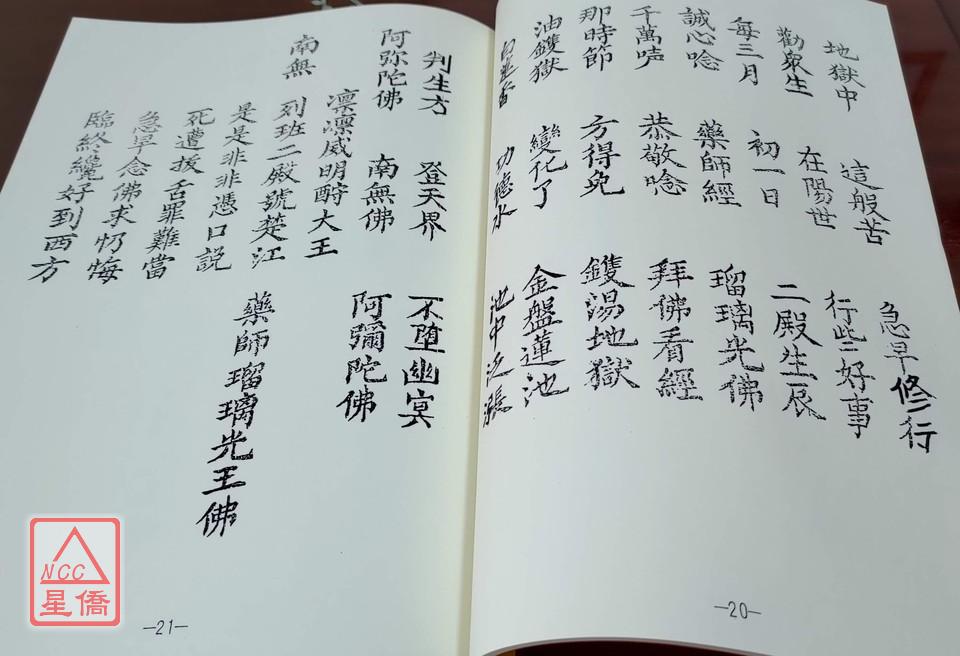 地獄中 這般苦 急早修行
勸衆生 在陽世 行些好事
每三月 初一日 二殿生辰
誠心唸 藥師經 瑠璃光佛
千萬声 恭敬唸 拜佛看經
那時節 方得免 鑊湯地獄
油鑊獄 變化了 金盤蓮池
功德水 池中泛漲
-20-
判生方 登天界 不堕幽冥
阿弥陀佛 南無佛 阿彌陀佛
凛凛威明酧大王
南無
列班二殿號楚江
是是非非憑口説
藥師瑠璃光王佛
死遭拔舌罪難當
急早念佛求忏悔
臨終纔好到西方
-21-
NCC
星僑